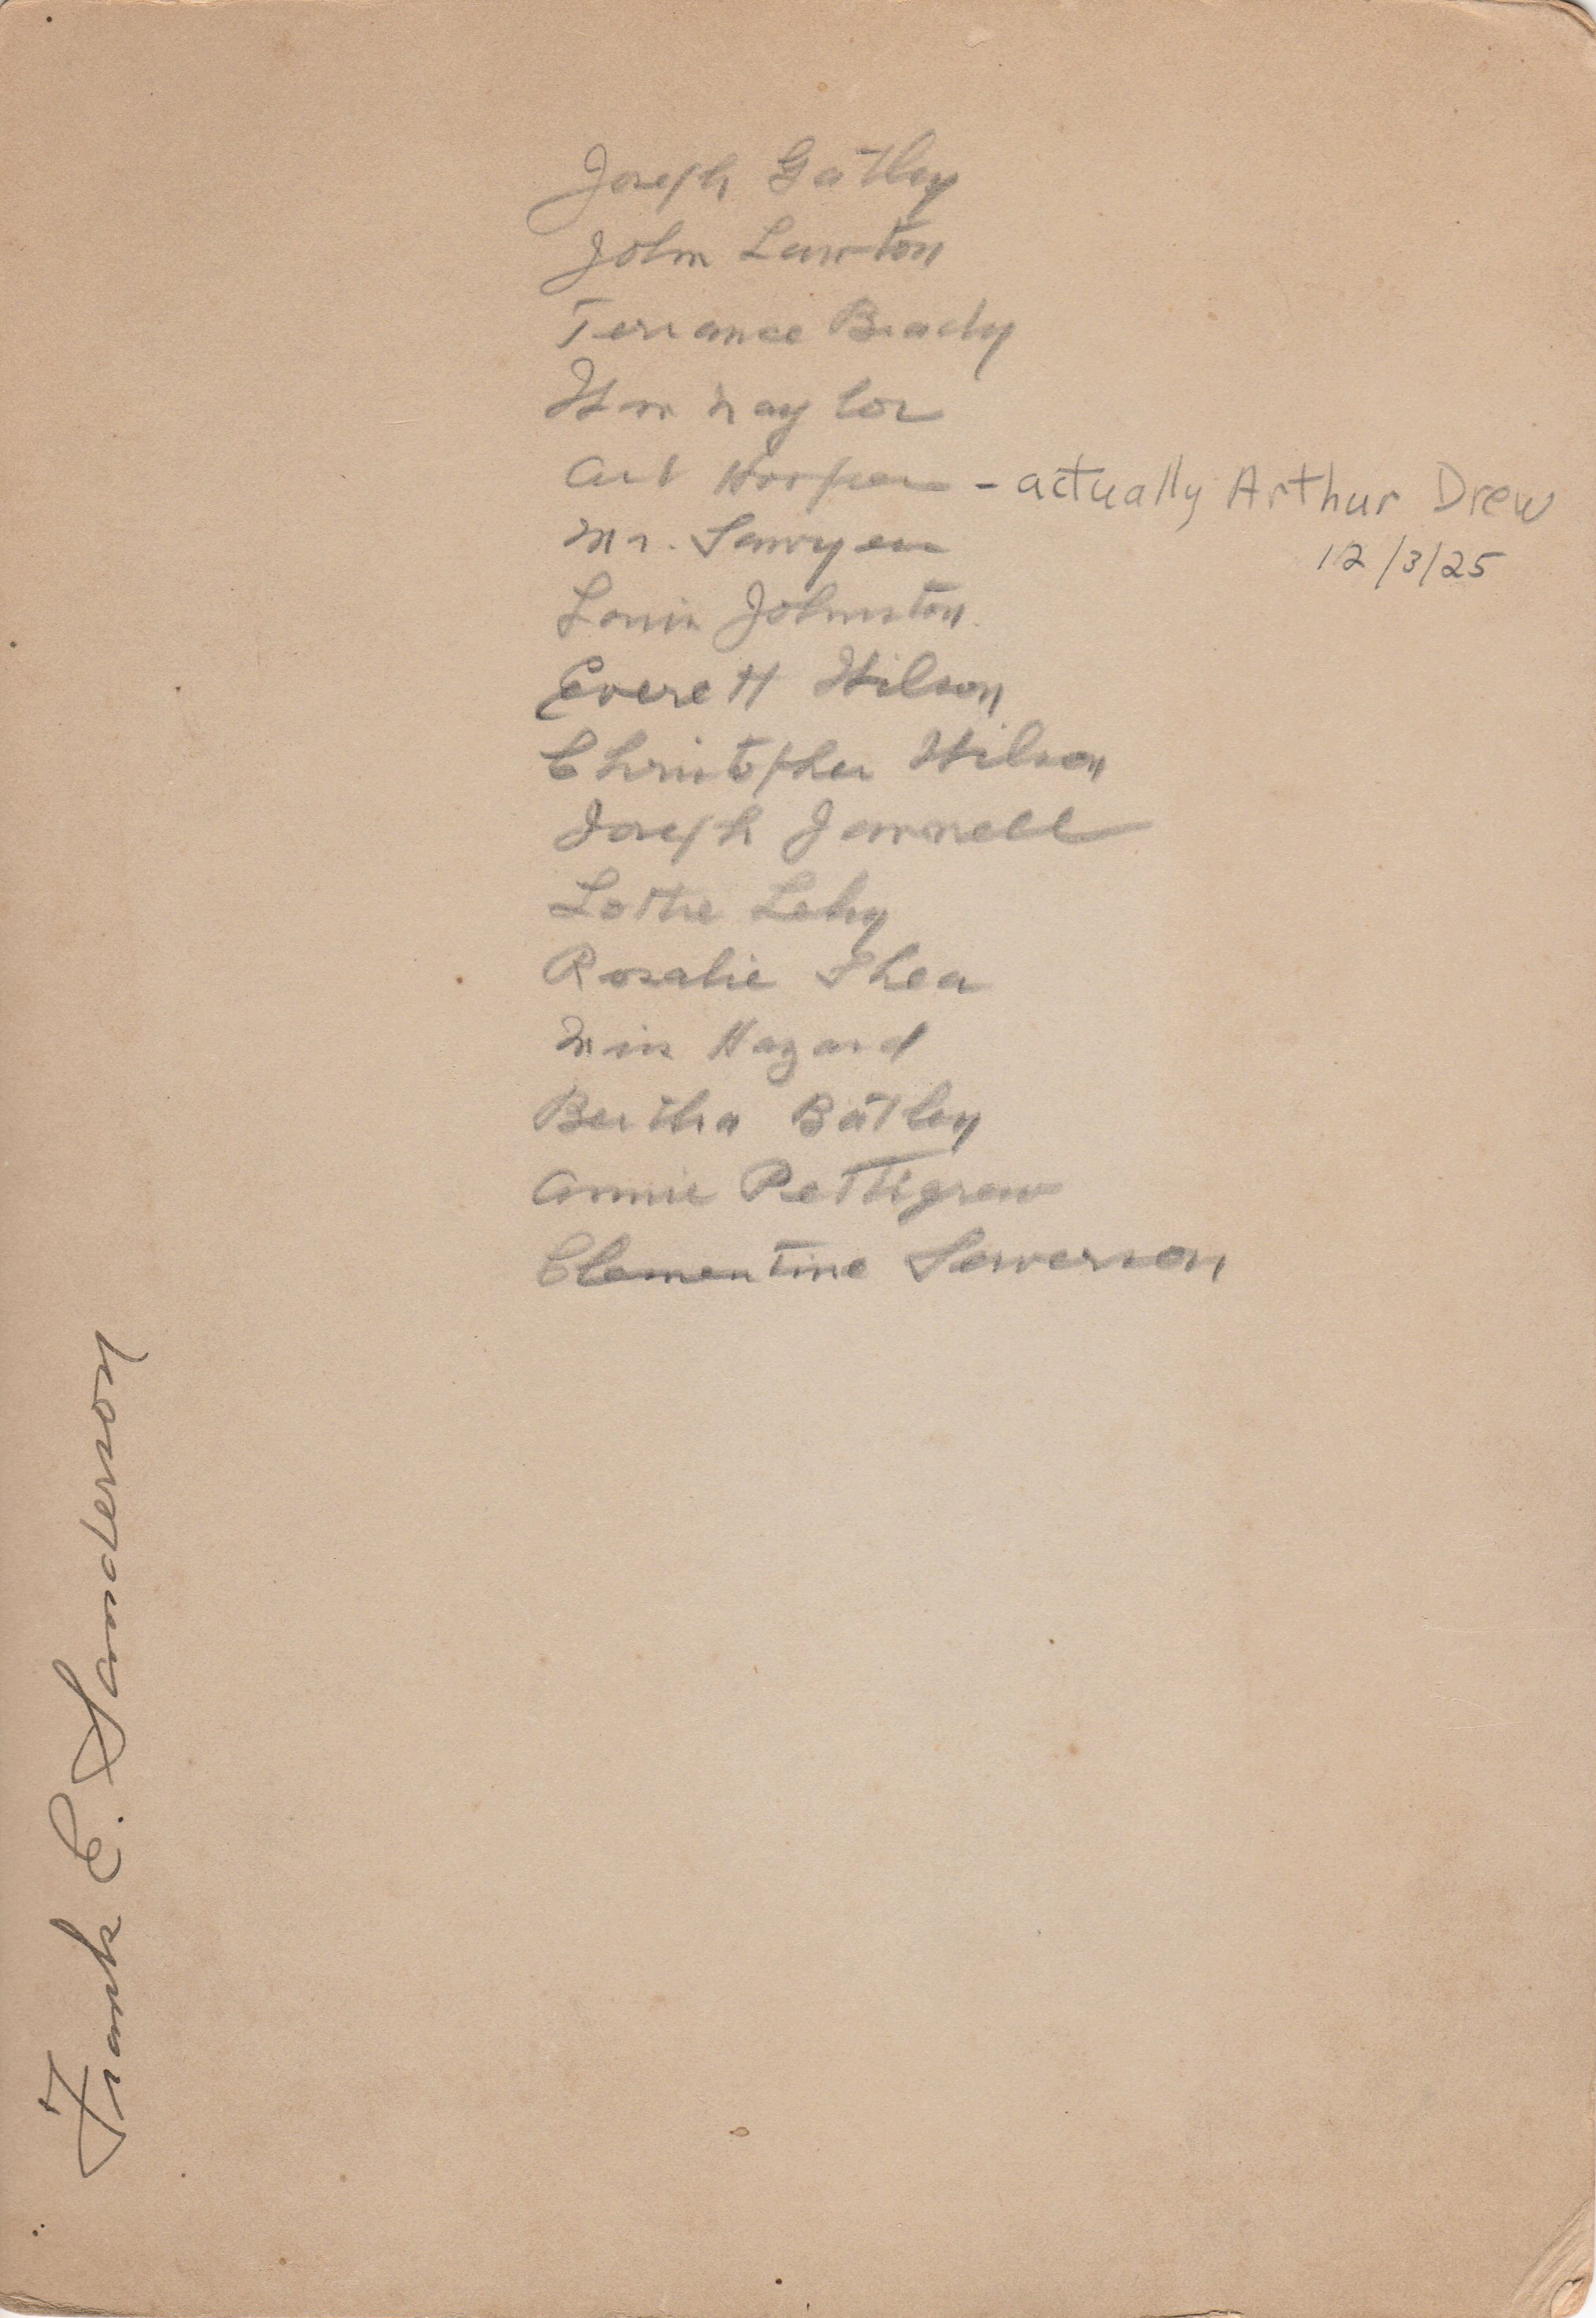 Joseph Gatley
John Lawton
Terrance Brady
Wm Naylor
Art Hooper - actually Arthur Drew
12/3/25
Mr. Sawyer
Louis Johnston
Everett Wilson
Christopher Wilson
Joseph Jannell
Lottie Lehy
Rosalie Shea
Miss Hazard
Bertha Batley
Annie Pettigrew
Clementine Severson
Frank E. Sanderson